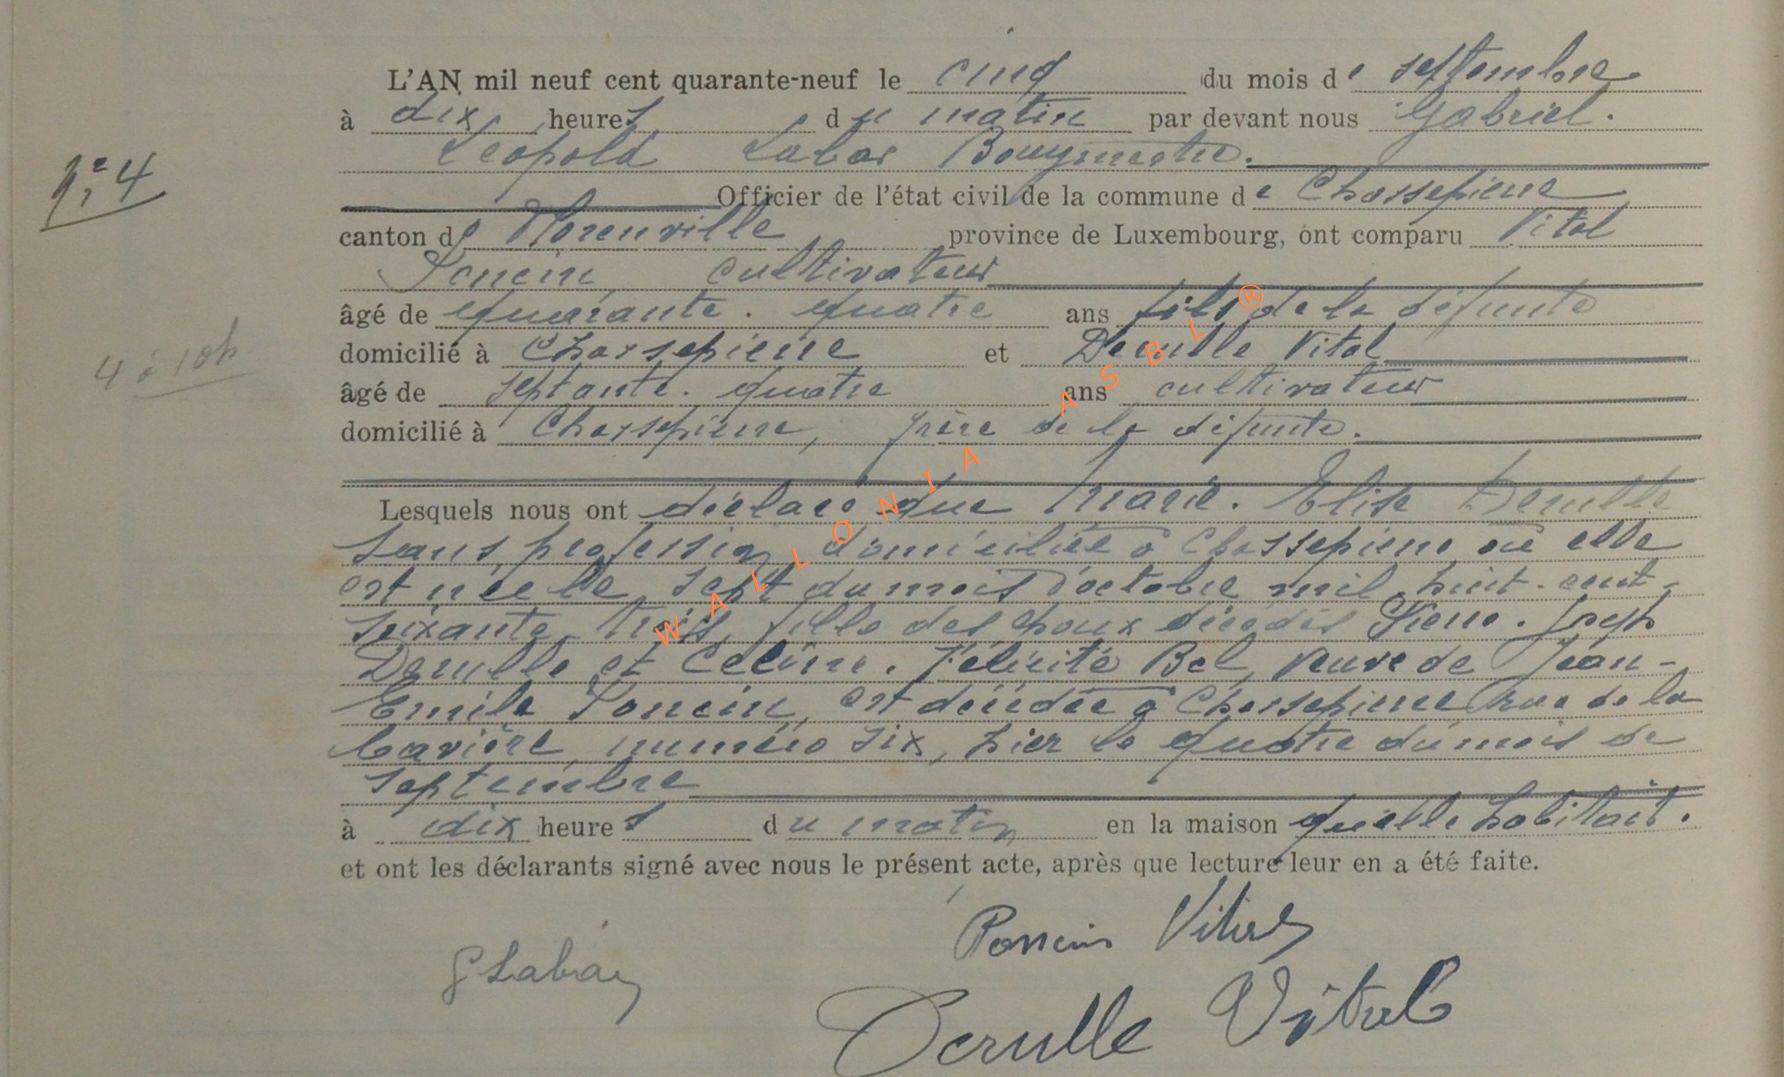 L'AN mil neuf cent quarante-neuf le cinq du mois de septembre
à dix heures du matin par devant nous Gabriel.
Léopold Labar Bourgmestre.
n° 4
Officier de l'état civil de la commune de Chassepierre
canton de Florenville province de Luxembourg, ont comparu Vital
Poncin, cultivateur
âgé de quarante-quatre ans fils de la défunte
4 à 10h
domicilié à Chassepierre et Derulle Vital
âgé de septante-quatre ans cultivateur
domicilié à Chassepierre, frère de la défunte.
Lesquels nous ont déclaré que Marie-Elise Derulle
sans profession, domiciliée à Chassepierre où elle
est née le sept du mois d'octobre mil huit-cent-
soixante-trois, fille des époux décédés Pierre-Joseph
Derulle et Céline-Félicité Bel, veuve de Jean-
Emile Poncin, est décédée à Chassepierre rue de la
, numéro six, hier le quatre du mois de
septembre
à dix heures du matin en la maison qu'elle habitait.
et ont les déclarants signé avec nous le présent acte, après que lecture leur en a été faite.
Poncin Vital
G Labar
Derulle Vital
WALLONIA ASBL ®